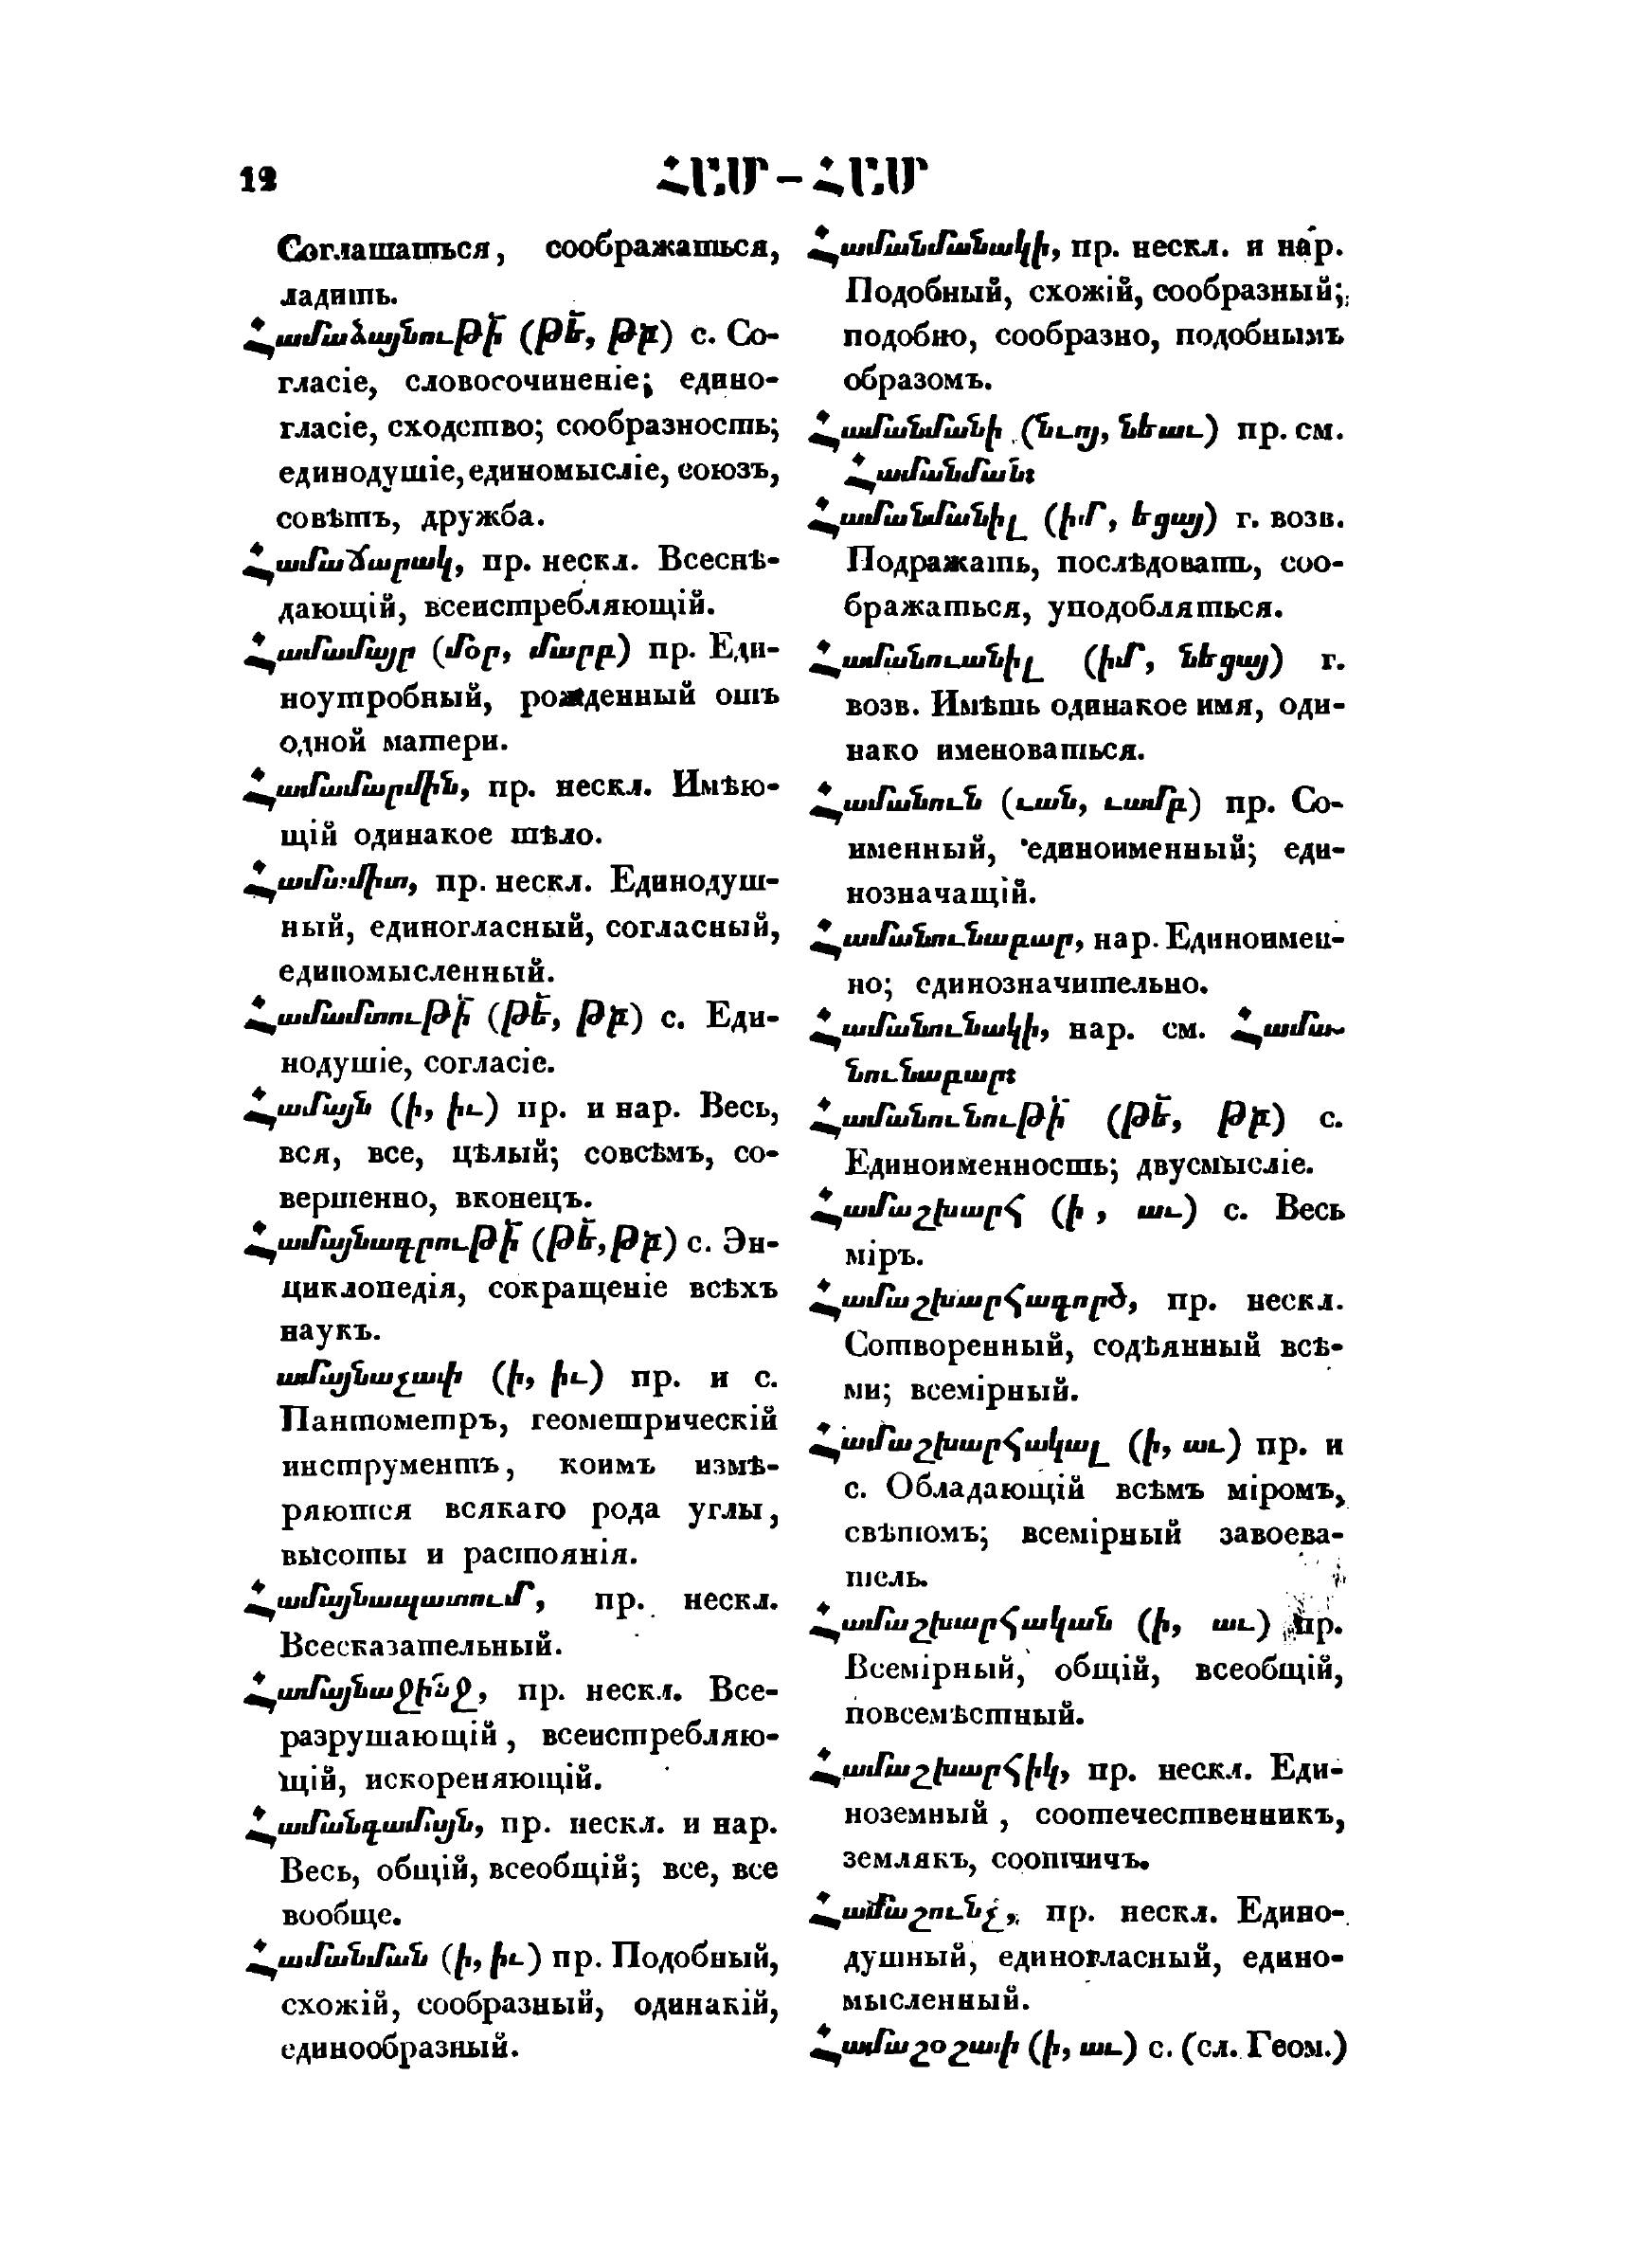 12
ՀԱՄ — ՀԱՄ
Соглашаться, соображаться,
ладить.
Համաձայնութի՜ (թե՜, թբ) с. Со-
гласіе, словосочиненіе; едино-
гласіе, сходство; сообразность;
единодушіе, единомысліе, союзъ,
совѣтъ, дружба.
Համաճարակ, пр. нескл. Всеснѣ-
дающій, всеистребляющій.
Համամայր (մօր, մարբ) пр. Еди-
ноутробный, рожденный отъ
одной матери.
Համամարմին, пр. нескл. Имѣю-
щій одинакое тѣло.
Համամիտ, пр. нескл. Единодуш-
ный, единогласный, согласный,
единомысленный.
Համամտութի՜ (թե՜, թբ) с. Еди-
нодушіе, согласіе.
Համայն (ի, իւ) пр. и нар. Весь,
вся, все, цѣлый; совсѣмъ, со-
вершенно, вконецъ.
Համայնագրութի՜ (թե՜, թբ) с. Эн-
циклопедія, сокращеніе всѣхъ
наукъ.
ամայնաչափ (ի, իւ) пр. и с.
Пантометръ, геометрическій
инструментъ, коимъ измѣ-
ряются всякаго рода углы,
высоты и растоянія.
Համայնապատում, пр. нескл.
Всесказательный.
Համայնաջինջ, пр. нескл. Все-
разрушающій, всеистребляю-
щій, искореняющій.
Համանգամայն, пр. нескл. и нар.
Весь, общій, всеобщій; все, все
вообще.
Համանման (ի, իւ) пр. Подобный,
схожій, сообразный, одинакій,
единообразный.
Համանմանակի, пр. нескл. и нар.
Подобный, схожій, сообразный;
подобно, сообразно, подобнымъ
образомъ.
Համանմանի (նւոյ, նեաւ) пр. см.
Համանման։
Համանմանիլ (իմ, եցայ) г. возв.
Подражать, послѣдовать, соо-
бражаться, уподобляться.
Համանուանիլ (իմ, նեցայ) г.
возв. Имѣть одинакое имя, оди-
нако именоваться.
Համանուն (ւան, ւամբ) пр. Со-
именный, единоименный; еди-
нозначащій.
Համանունաբար, нар. Единоимен-
но; единозначительно.
Համանունակի, нар. см. Համա-
նունաբար։
Համանունութի՜ (թե՜, թբ) с.
Единоименность; двусмысліе.
Համաշխարհ (ի, աւ) с. Весь
міръ.
Համաշխարհագործ, пр. нескл.
Сотворенный, содѣянный всѣ-
ми; всемірный.
Համաշխարհակալ (ի, աւ) пр. и
с. Обладающій всѣмъ міромъ,
свѣтомъ; всемірный завоева-
тель.
Համաշխարհական (ի, աւ) пр.
Всемірный, общій, всеобщій,
повсемѣстный.
Համաշխարհիկ, пр. нескл. Еди-
ноземный, соотечественникъ,
землякъ, соотчичъ.
Համաշունչ, пр. нескл. Едино-
душный, единогласный, едино-
мысленный.
Համաշօշափ (ի, աւ) с. (сл. Геом.)